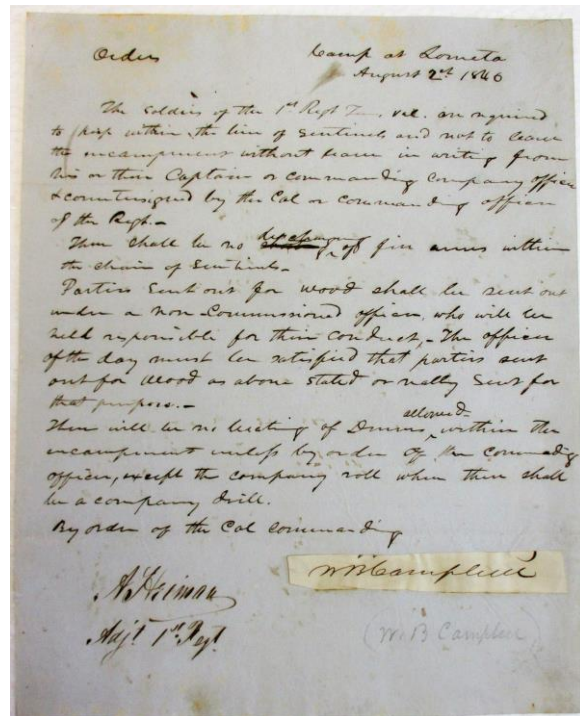 Orders Camp at Lometa
August 2nd 1846
The Soldiers of the 1st Regt Ten. vol. are required
to keep within the line of Sentinels and not to leave
the encampment without leave in writing from
his or their Captain or commanding company officer
& countersigned by the Col or commanding officer
of the Regt.-
There shall be no discharge of fire arms within
the chain of Sentinels-
Parties Sent out for wood shall be sent out
under a non-Commissioned officer, who will be
held responsible for their conduct,- The officer
of the day must be satisfied that parties sent
out for Wood as above stated or really Sent for
that purpose.-
There will be no beating of Drums allowed within the
encampment unless by order of the commading
officer, except the company roll when there shall
be a company drill.
By order of the Col commanding
WB Campbell
A Heiman
Adjt. 1st Regt.
(W B Campbell)